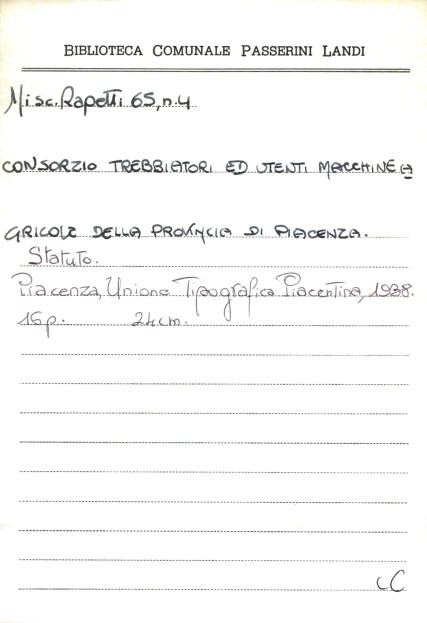 BIBLIOTECA COMUNALE PASSERINI LANDI
Misc. Rapetti 65, n. 4
CONSORZIO TREBBIATORI ED UTENTI MACCHINE A
GRICOLE DELLA PROVINCIA DI PIACENZA.
Statuto.
Piacenza, Unione Tipografica Piacentina, 1938.
16 p. 24 cm.